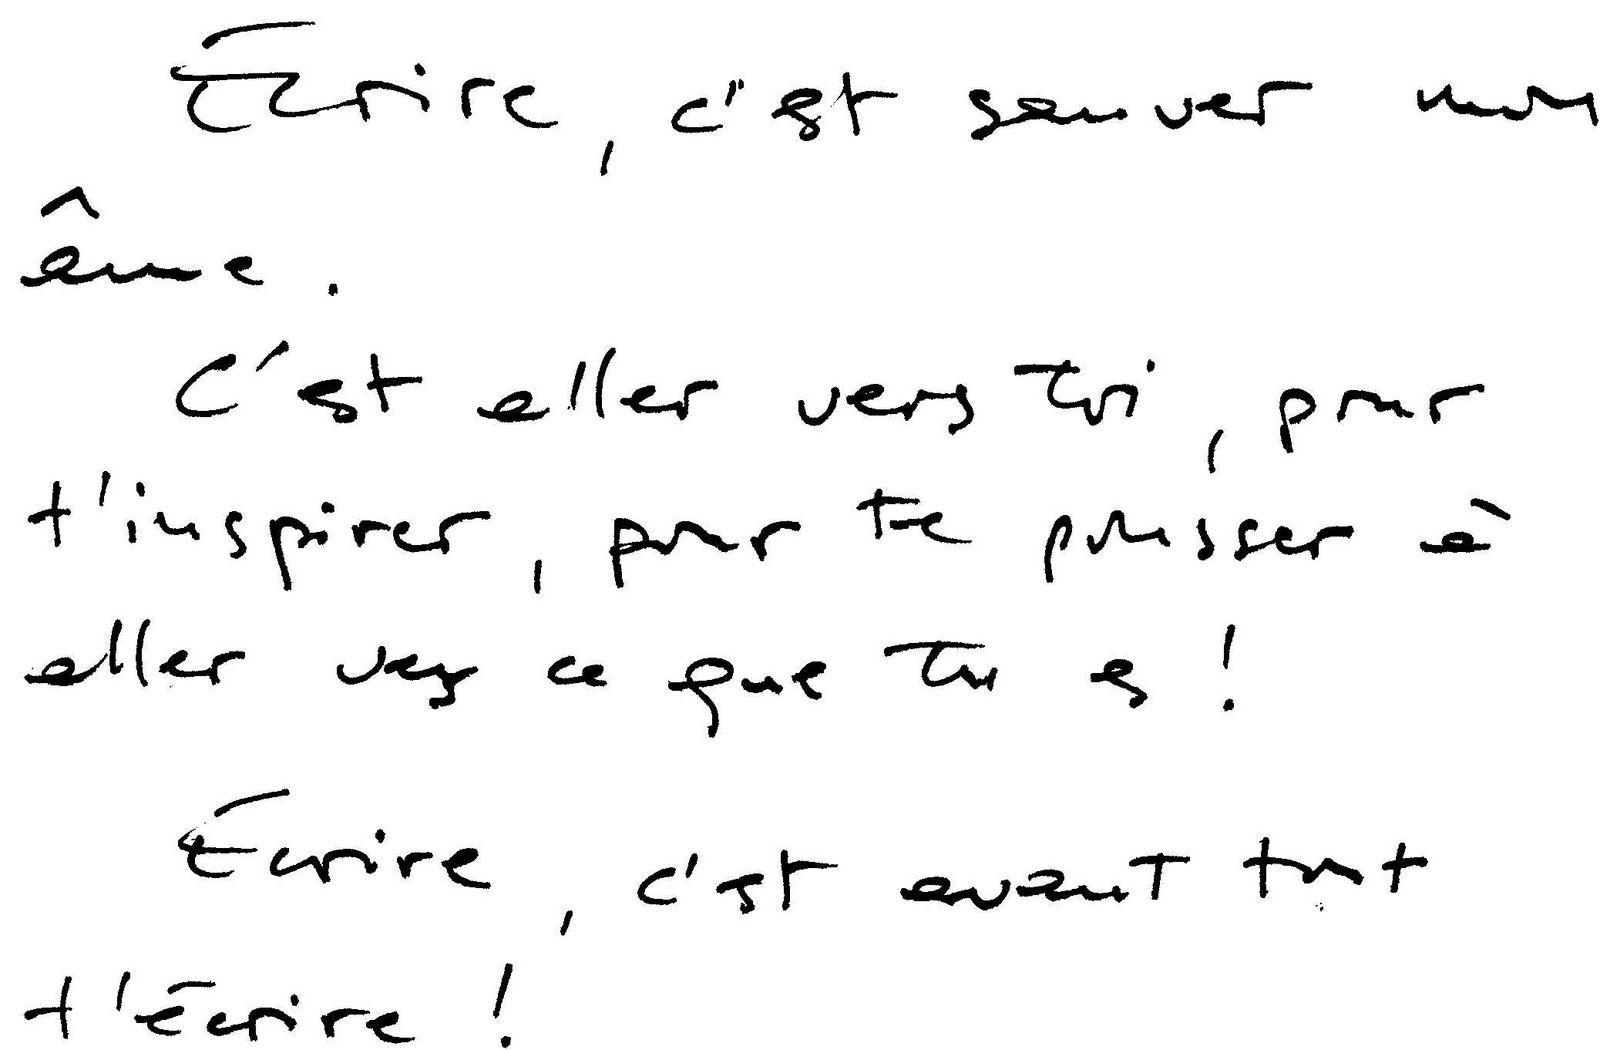 Écrire, c'est sauver mon
âme.
C'est aller vers toi, pour
t'inspirer, pour te pousser à
aller vers ce que tu es !
Écrire, c'est avant tout
t'écrire !